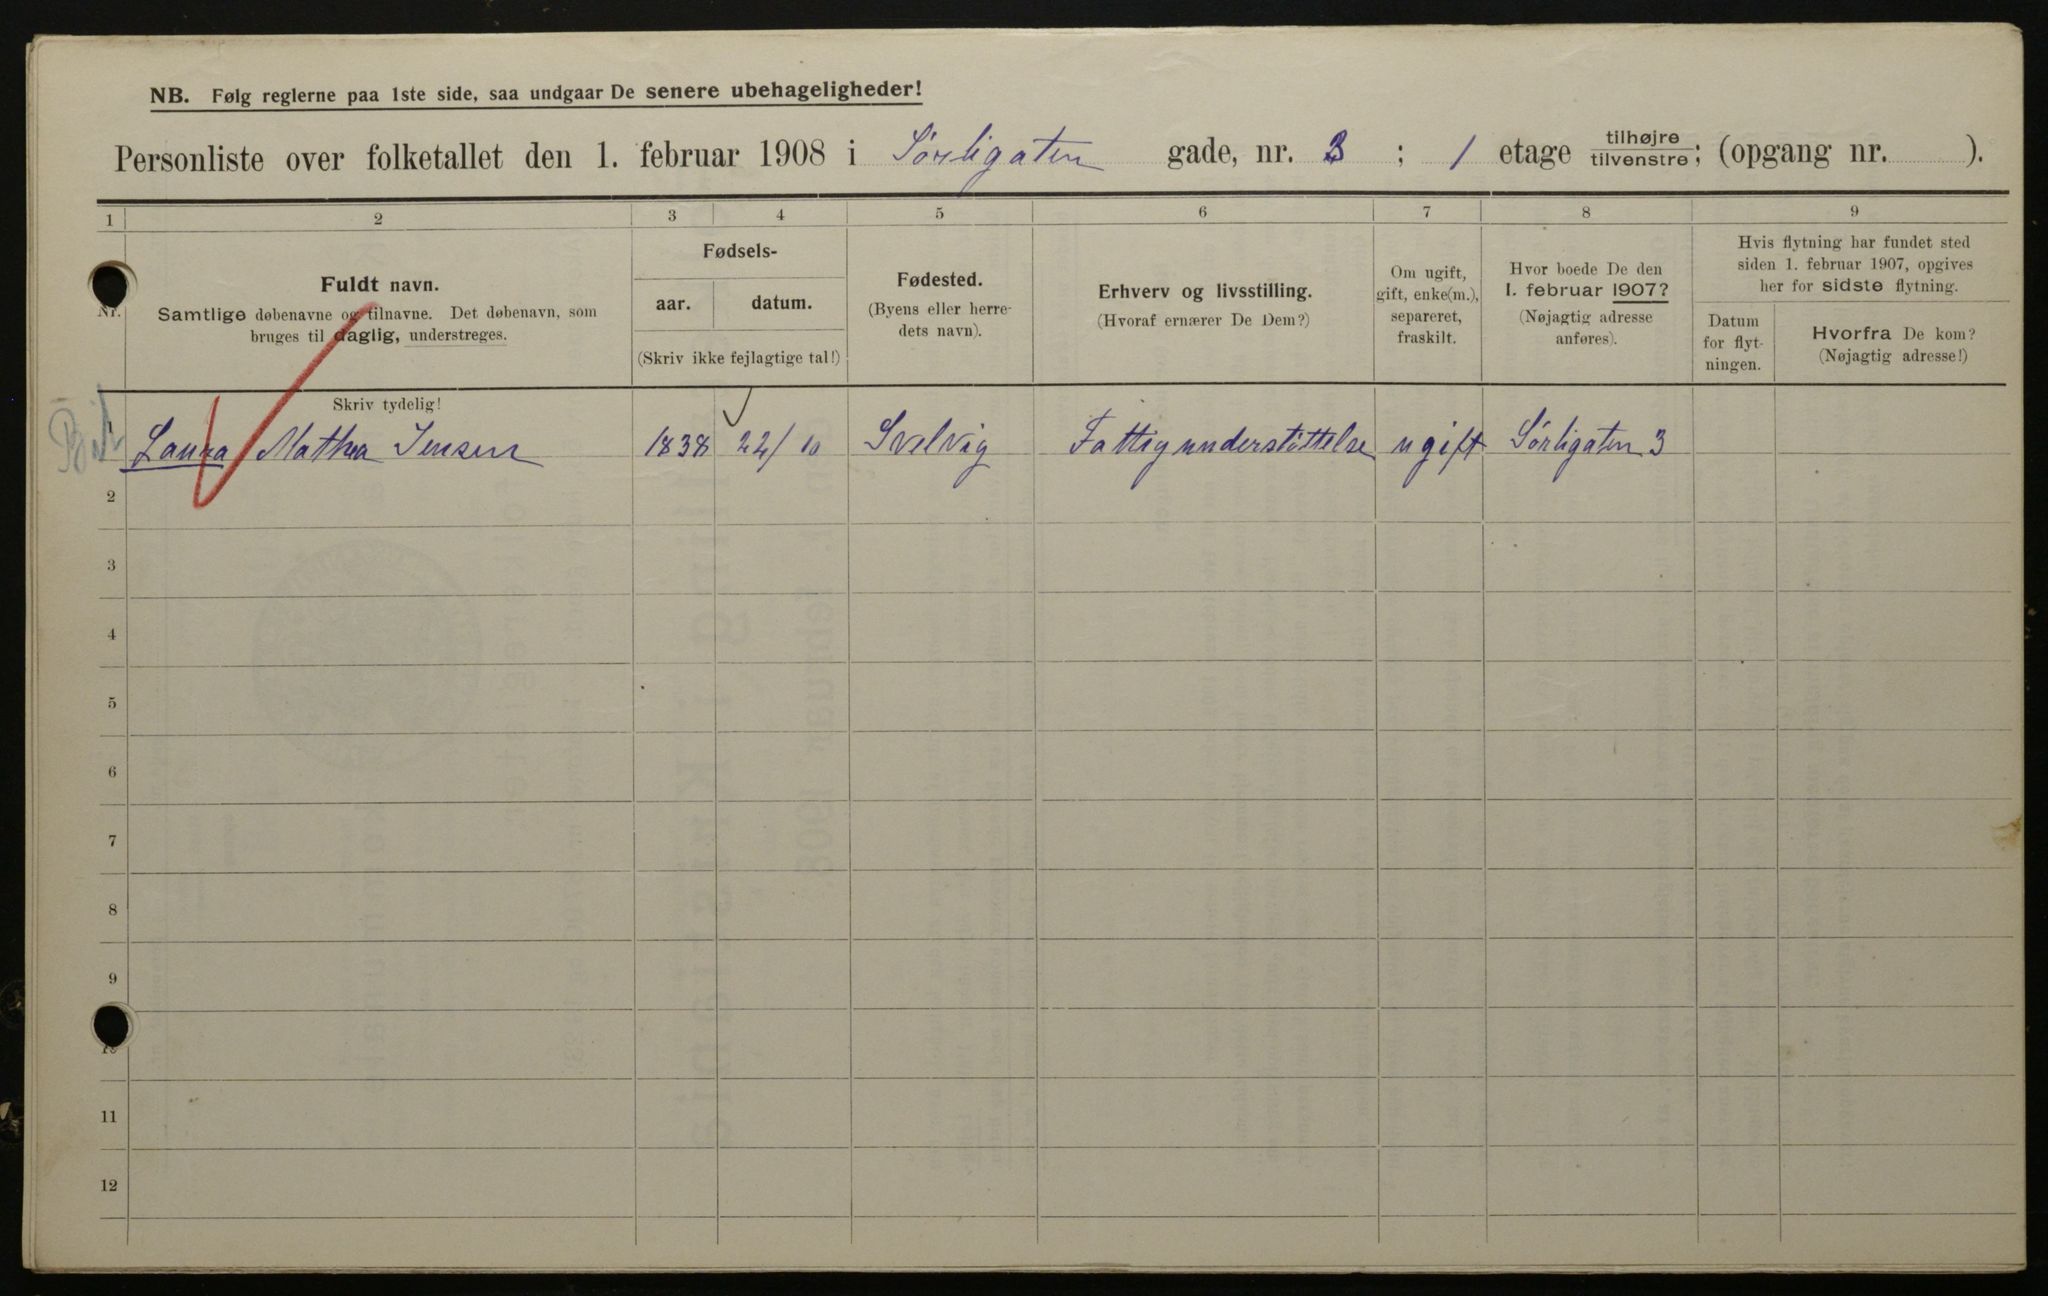 NB. Følg reglerne paa 1ste side, saa undgaar De senere ubehageligheder!
Personliste over folketallet den 1. februar 1908 i Sørligaten gade, nr. 3 ; 1 etage tilhøjre/tilvenstre; (opgang nr. ).
1 2 3 4 5 6 7 8 9
Nr.
Fuldt navn.
Samtlige døbenavne og tilnavne. Det døbenavn, som
bruges til daglig, understreges.
Fødsels-
aar. datum.
(Skriv ikke fejlagtige tal!)
Fødested.
(Byens eller herre-
dets navn).
Erhverv og livsstilling.
(Hvoraf ernærer De Dem?)
Om ugift,
gift, enke(m.),
separeret,
fraskilt.
Hvor boede De den
1. februar 1907?
(Nøjagtig adresse
anføres).
Hvis flytning har fundet sted
siden 1. februar 1907, opgives
her for sidste flytning.
Datum
for flyt-
ningen.
Hvorfra De kom?
(Nøjagtig adresse!)
Skriv tydelig!
1 Laura Mathea Jensen 1838 22/10 Svelvig Fattigunderstøttelse ugift Sørligaten 3
2
3
4
5
6
7
8
9
10
11
12